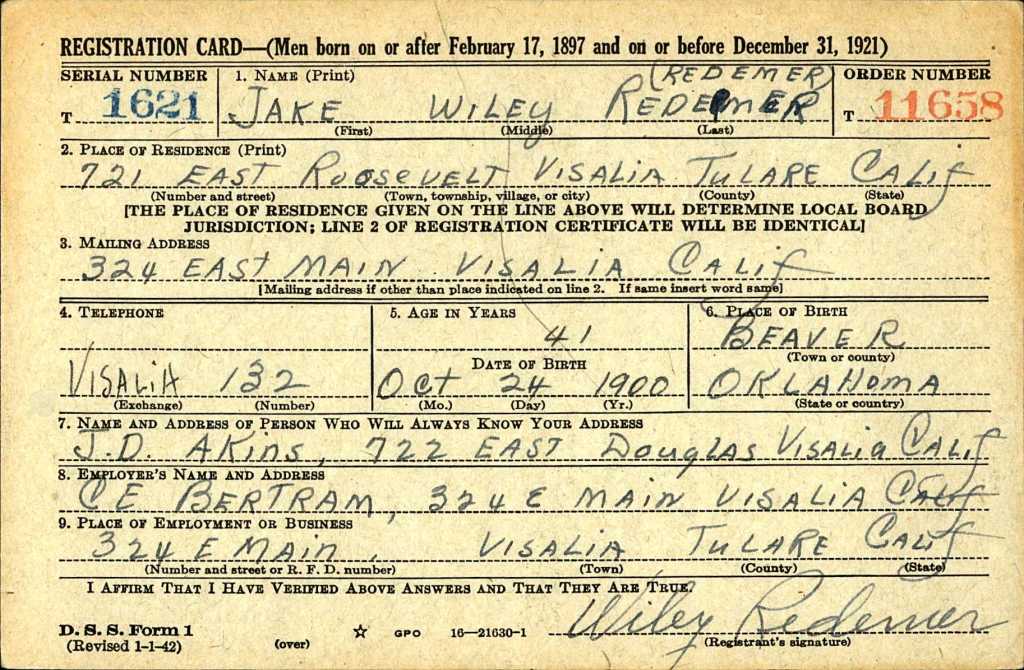 REGISTRATION CARD—(Men born on or after February 17, 1897 and on or before December 31, 1921)
SERIAL NUMBER 1. NAME (Print) (REDEMER) ORDER NUMBER
T 1621 JAKE WILEY REDEMER T 11658
(First) (Middle) (Last)
2. PLACE OF RESIDENCE (Print)
721 EAST ROOSEVELT VISALIA TULARE CALIF
(Number and street) (Town, township, village, or city) (County) (State)
[THE PLACE OF RESIDENCE GIVEN ON THE LINE ABOVE WILL DETERMINE LOCAL BOARD
JURISDICTION; LINE 2 OF REGISTRATION CERTIFICATE WILL BE IDENTICAL]
3. MAILING ADDRESS
324 EAST MAIN VISALIA CALIF
[Mailing address if other than place indicated on line 2. If same insert word same]
4. TELEPHONE 5. AGE IN YEARS 6. PLACE OF BIRTH
41 BEAVER
DATE OF BIRTH (Town or county)
VISALIA 132 OCT 24 1900 OKLAHOMA
(Exchange) (Number) (Mo.) (Day) (Yr.) (State or country)
7. NAME AND ADDRESS OF PERSON WHO WILL ALWAYS KNOW YOUR ADDRESS
J.D. AKINS, 722 EAST DOUGLAS VISALIA CALIF
8. EMPLOYER'S NAME AND ADDRESS
CE BERTRAM, 324 E MAIN VISALIA CALIF
9. PLACE OF EMPLOYMENT OR BUSINESS
324 E MAIN, VISALIA TULARE CALIF
(Number and street or R. F. D. number) (Town) (County) (State)
I AFFIRM THAT I HAVE VERIFIED ABOVE ANSWERS AND THAT THEY ARE TRUE.
Wiley Redemer
D. S. S. Form 1
(Revised 1-1-42) (over) ☆ GPO 16—21630-1 (Registrant's signature)